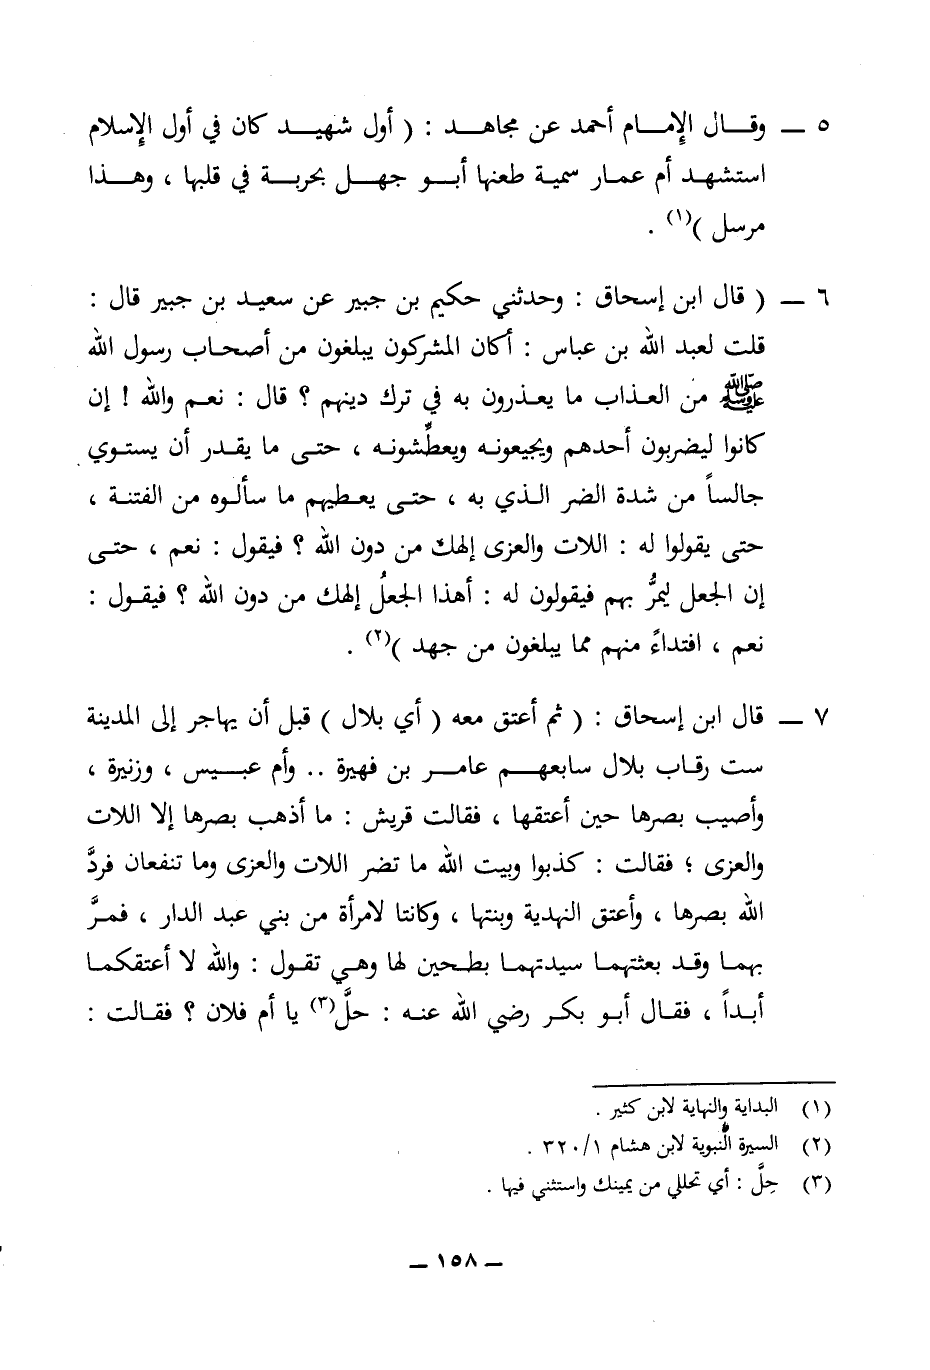 ٥ ــ وقـــال الإمـــام أحمد عن مجاهـــد : ( أول شهيـــد كان في أول الإسلام
استشهـد أم عمـار سمية طعنها أبـو جهـل بحربـة في قلبها ، وهـذا
مرسل )(١) .
٦ ــ ( قال ابن إسحاق : وحدثني حكيم بن جبير عن سعيد بن جبير قال :
قلت لعبد الله بن عباس : أكان المشركون يبلغون من أصحاب رسول الله
ﷺ من العذاب ما يعذرون به في ترك دينهم ؟ قال : نعم والله ! إن
كانوا ليضربون أحدهم ويجيعونه ويعطِّشونه ، حتى ما يقدر أن يستوي
جالساً من شدة الضر الذي به ، حتى يعطيهم ما سألوه من الفتنة ،
حتى يقولوا له : اللات والعزى إلهك من دون الله ؟ فيقول : نعم ، حتى
إن الجعل ليمرُّ بهم فيقولون له : أهذا الجعلُ إلهك من دون الله ؟ فيقول :
نعم ، افتداءً منهم مما يبلغون من جهد )(٢) .
٧ ــ قال ابن إسحاق : ( ثم أعتق معه ( أي بلال ) قبل أن يهاجر إلى المدينة
ست رقاب بلال سابعهم عامر بن فهيرة .. وأم عبيس ، وزنيرة ،
وأصيب بصرها حين أعتقها ، فقالت قريش : ما أذهب بصرها إلا اللات
والعزى ؛ فقالت : كذبوا وبيت الله ما تضر اللات والعزى وما تنفعان فردَّ
الله بصرها ، وأعتق النهدية وبنتها ، وكانتا لامرأة من بني عبد الدار ، فمرَّ
بهما وقد بعثتهما سيدتهما بطحين لها وهي تقول : والله لا أعتقكما
أبداً ، فقال أبو بكر رضي الله عنه : حلَّ(٣) يا أم فلان ؟ فقالت :
(١) البداية والنهاية لابن كثير .
(٢) السيرة النبوية لابن هشام ٣٢٠/١ .
(٣) حِلَّ : أي تحللي من يمينك واستثني فيها .
ــ ١٥٨ ــ